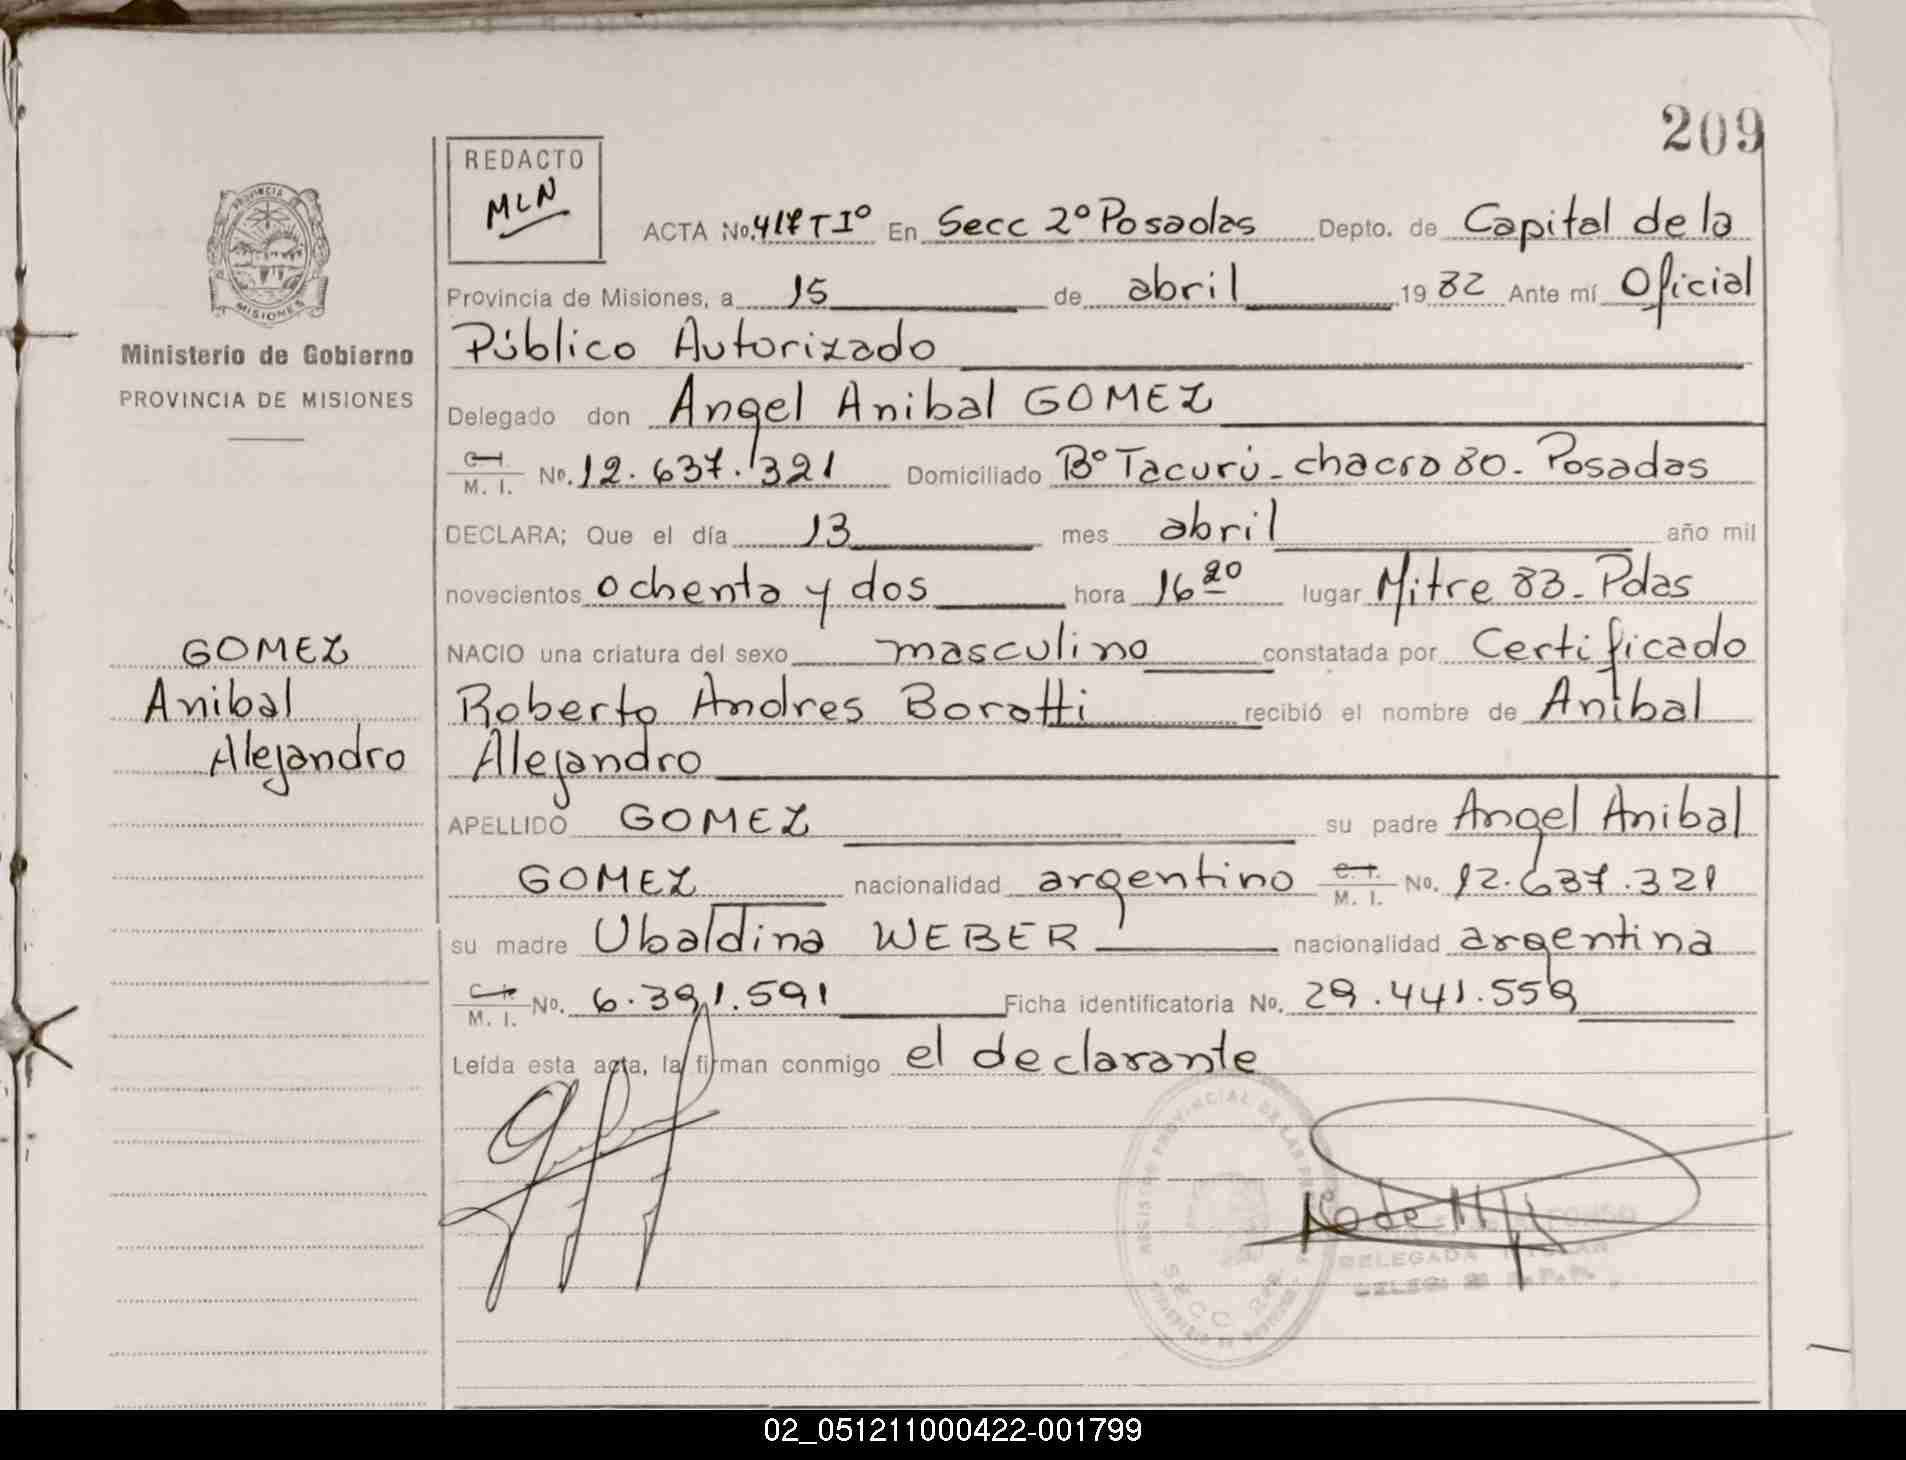 209
REDACTO
MLN
ACTA No. 417 T Iº En Secc 2º Posadas Depto. de Capital de la
Provincia de Misiones, a 15 de abril 1982 Ante mí Oficial
Público Autorizado
Ministerio de Gobierno
PROVINCIA DE MISIONES
Delegado don Angel Anibal GOMEZ
C. I. M. I. No. 12.637.321 Domiciliado Bº Tacurú - chacra 80 - Posadas
DECLARA; Que el día 13 mes abril año mil
novecientos ochenta y dos hora 16 20 lugar Mitre 83 - Pdas
NACIO una criatura del sexo masculino constatada por Certificado
Roberto Andres Boratti recibió el nombre de Anibal
Alejandro
GOMEZ
Anibal
Alejandro
APELLIDO GOMEZ su padre Angel Anibal
GOMEZ nacionalidad argentino C. I. M. I. No. 12.637.321
su madre Ubaldina WEBER nacionalidad argentina
C. I. M. I. No. 6.391.591 Ficha identificatoria No. 29.441.559
Leída esta acta, la firman conmigo el declarante
DELEGADA TITULAR
SECC 2da
PROVINCIA DE MISIONES
02_051211000422-001799